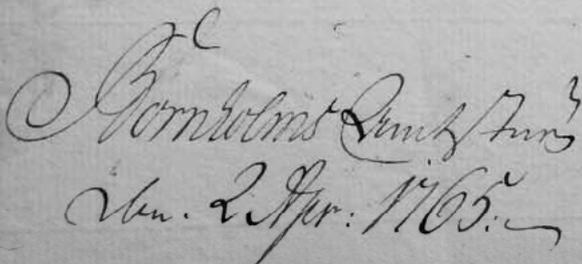 Bornholms Amtstue
den. 2 Apr: 1765.